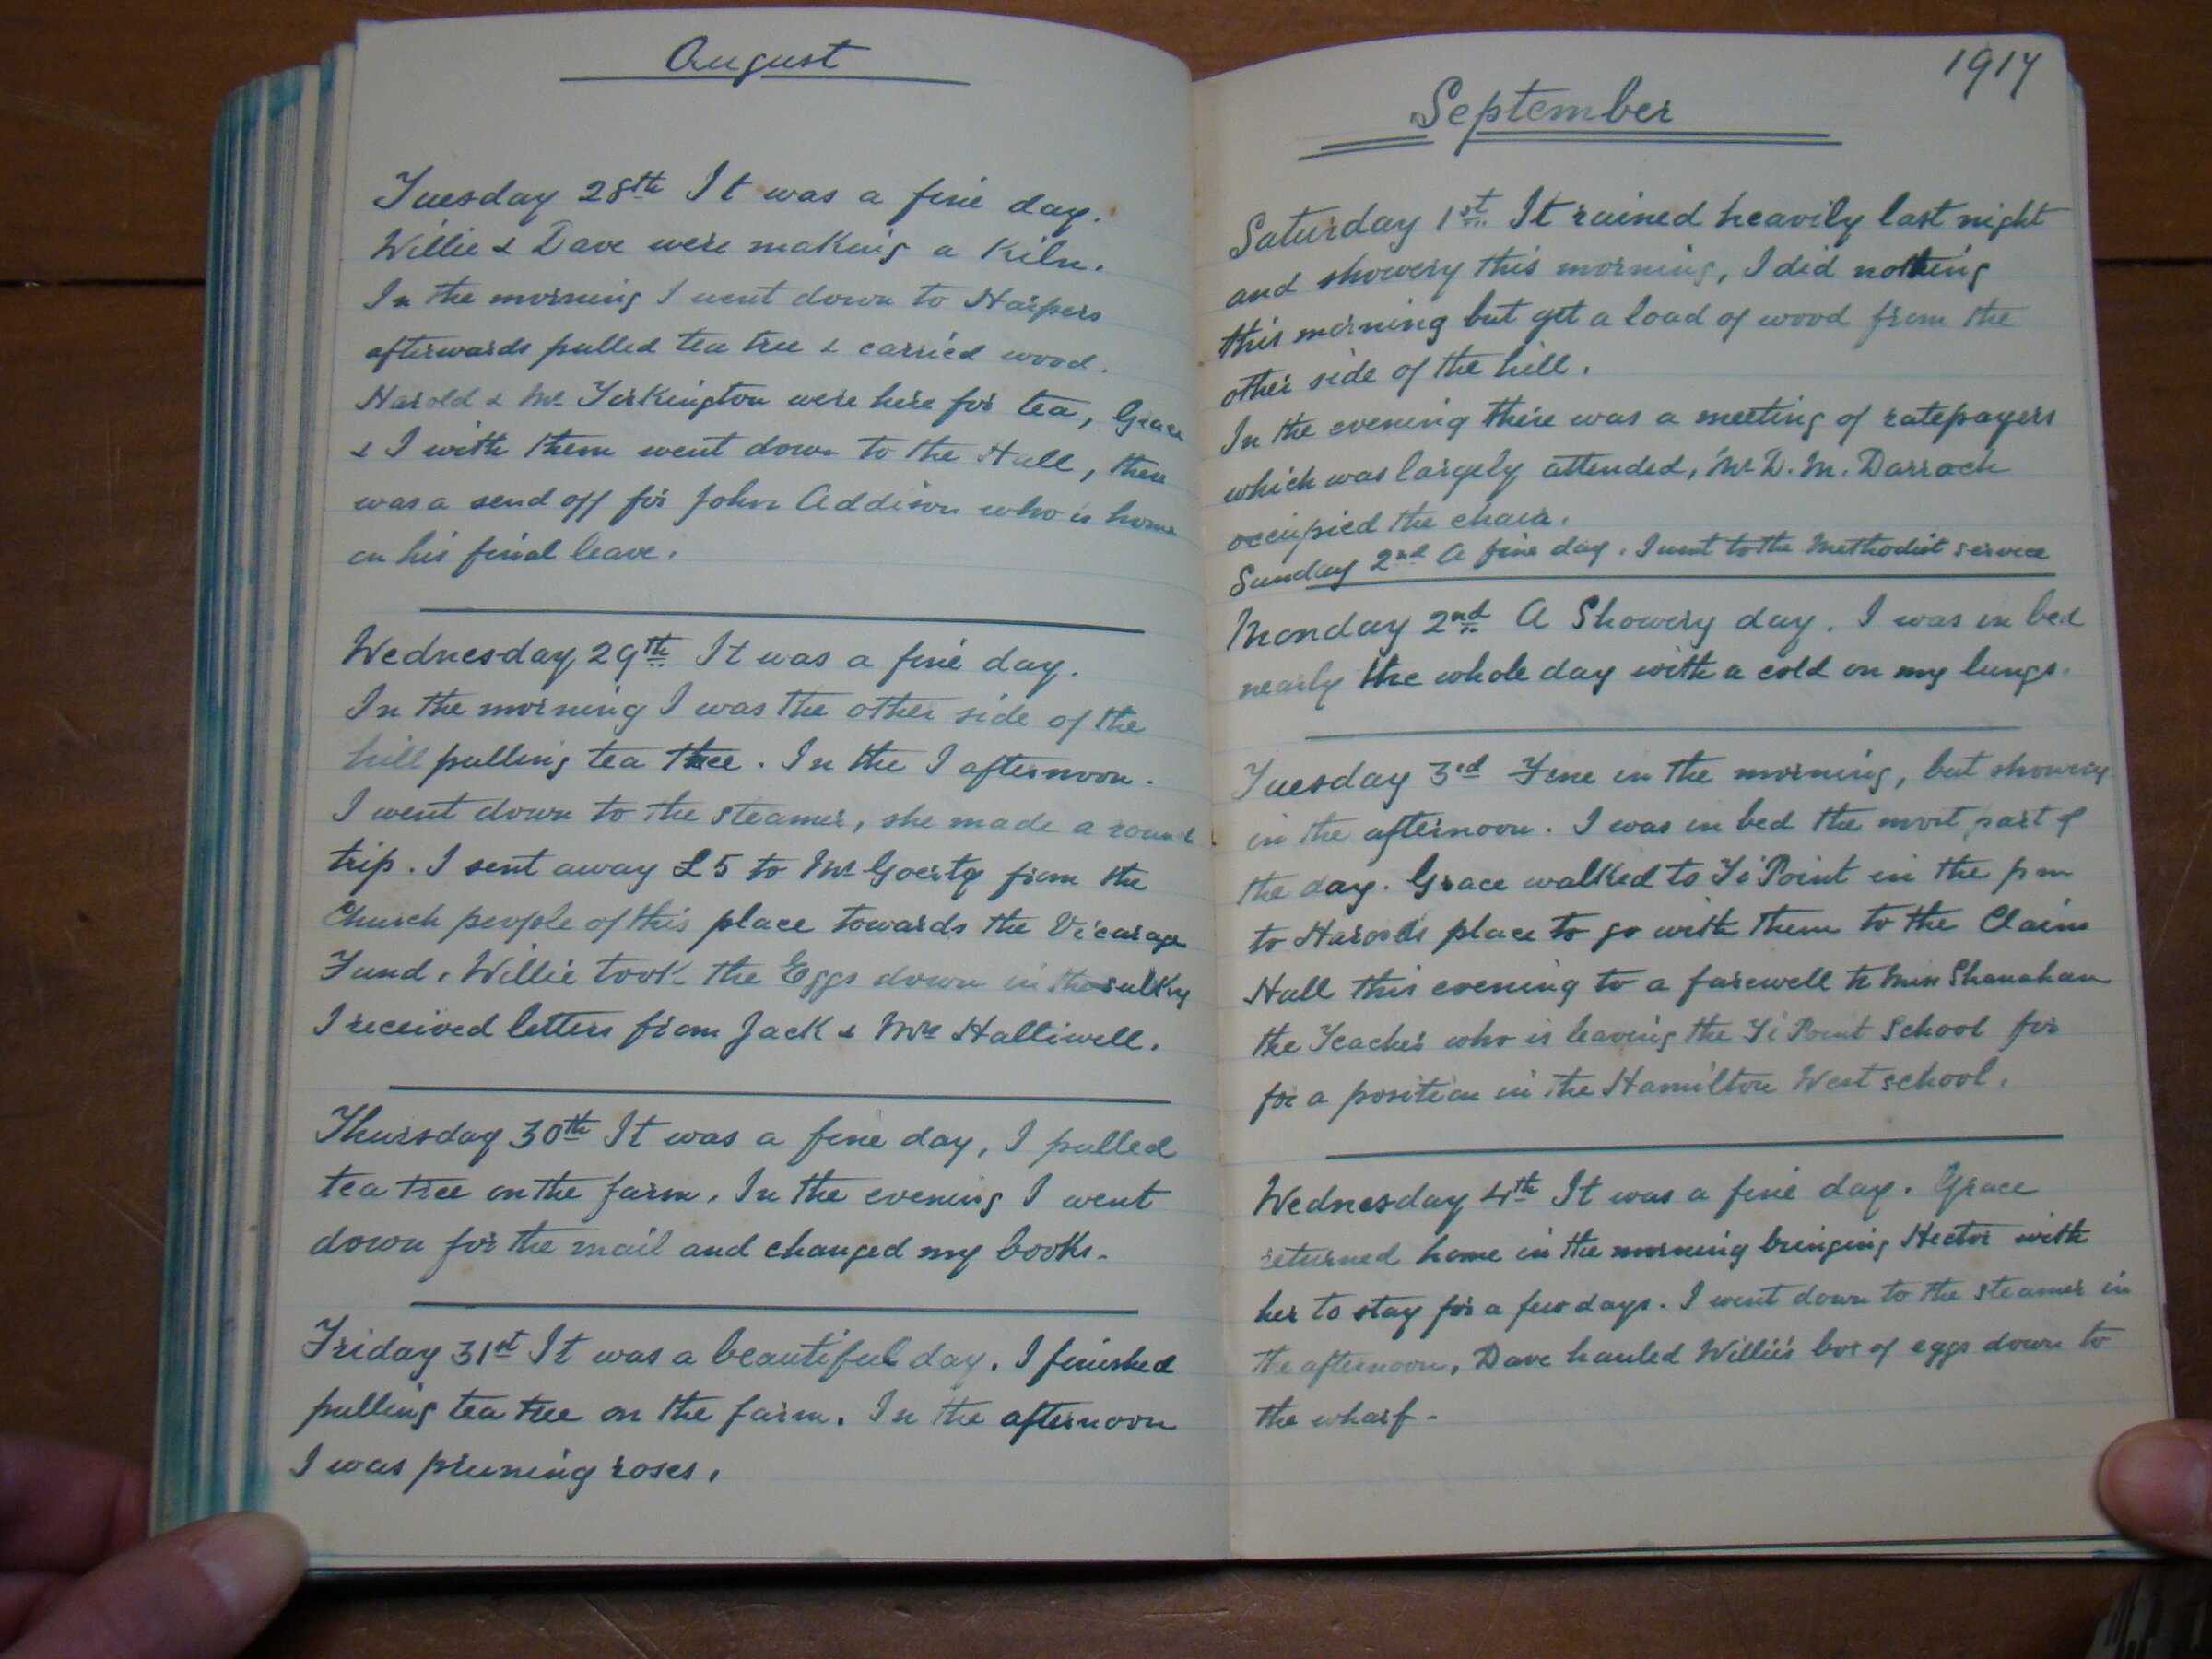 August
Tuesday 28th It was a fine day.
Willie & Dave were making a Kiln.
In the morning I went down to Harpers
afterwards pulled tea tree & carried wood.
Harold & Mr Torkington were here for tea, Grace
& I with them went down to the Hall, there
was a send off for John Addison who is home
on his final leave.
Wednesday 29th It was a fine day.
In the morning I was the other side of the
hill pulling tea tree. In the I afternoon.
I went down to the steamer, she made a round
trip. I sent away £5 to Mr from the
Church people of this place towards the Vicarage
Fund. Willie took the Eggs down in the sulky
I received letters from Jack & Mrs Halliwell.
Thursday 30th It was a fine day, I pulled
tea tree on the farm. In the evening I went
down for the mail and changed my books.
Friday 31st It was a beautiful day. I finished
pulling tea tree on the farm. In the afternoon
I was pruning roses.
1917
September
Saturday 1st It rained heavily last night
and showery this morning, I did nothing
this morning but get a load of wood from the
other side of the hill.
In the evening there was a meeting of ratepayers
which was largely attended, Mr D. M. Darrach
occupied the chair.
Sunday 2nd A fine day. I went to the Methodist service
Monday 2nd A Showery day. I was in bed
nearly the whole day with a cold on my lungs.
Tuesday 3rd Fine in the morning, but showery
in the afternoon. I was in bed the most part of
the day. Grace walked to Ti Point in the pm
to Harolds place to go with them to the Claim
Hall this evening to a farewell to Miss Shanahan
the Teacher who is leaving the Ti Point School for
for a position in the Hamilton West school.
Wednesday 4th It was a fine day. Grace
returned home in the morning bringing Hector with
her to stay for a few days. I went down to the steamer in
the afternoon, Dave hauled Willie's box of eggs down to
the wharf-